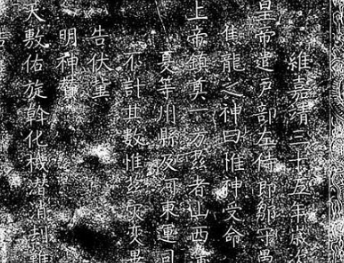 維嘉靖三十五年歲
皇帝遣戶部左侍郎鄒守愚
隹龍之神曰惟神受命
上帝鎮奠一方茲者山西
夏等州縣及河東運司
不計其數惟茲災異
告伏望
明神
大敷佑旋斡化機潛消
告